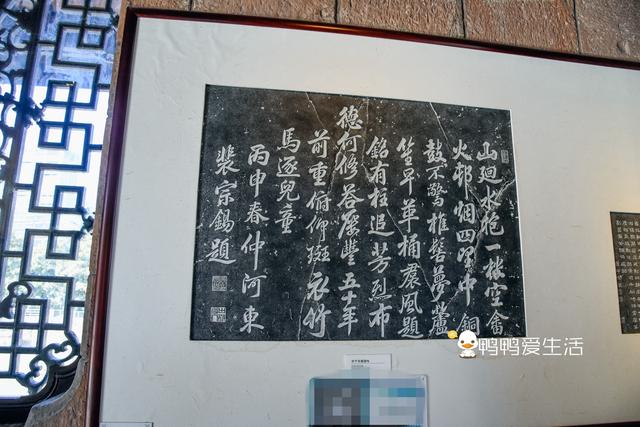 山迴水抱一樓空畬
火邨烟四望中銅
鼓不驚椎髻夢蘆
笙早革桶裠風題
銘有柱追芳烈布
德何修答屢豐五十年
前重俯仰斑衣竹
馬逐兒童
丙申春仲河東
裴宗錫題
鸭鸭爱生活